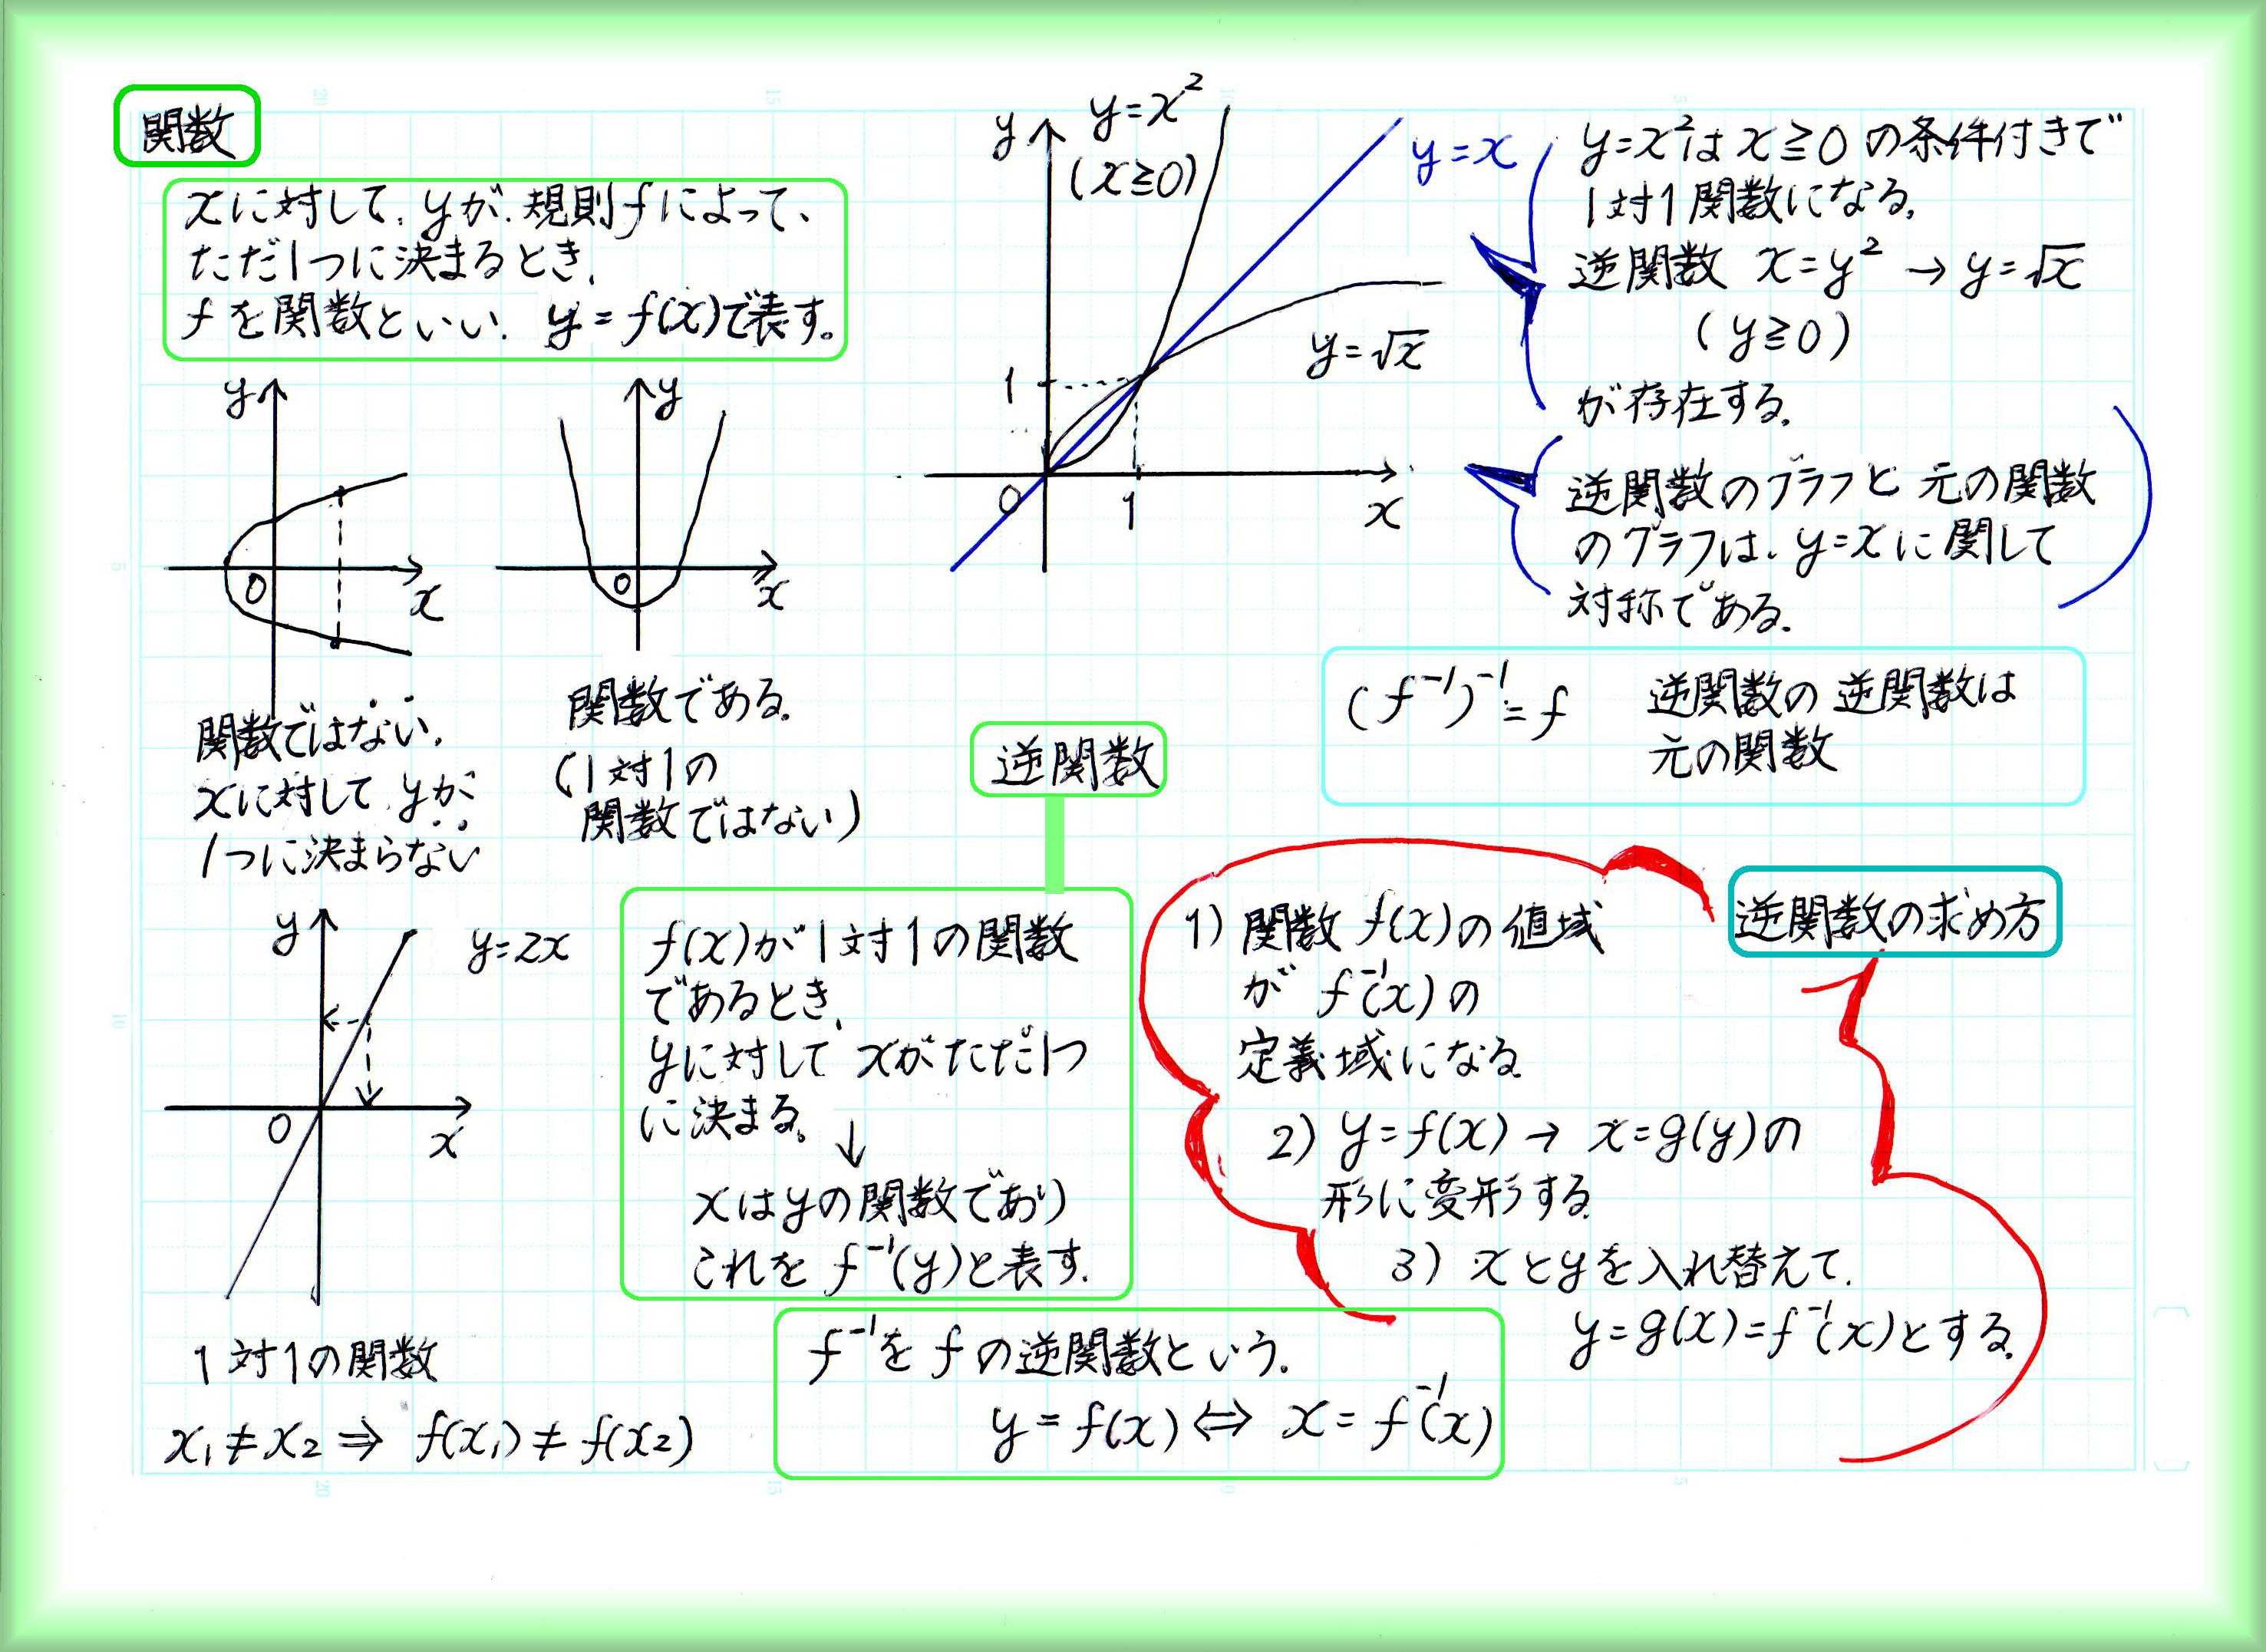 関数
xに対して、yが、規則fによって、
ただ1つに決まるとき、
fを関数といい、y=f(x)で表す。
y
0
x
関数ではない、
xに対して、yが
1つに決まらない
y
0
x
関数である。
(1対1の
関数ではない)
y
y=2x
0
x
1対1の関数
x₁≠x₂⇒ f(x₁)≠f(x₂)
y
y=x²
(x≧0)
y=x
y=√x
1
0
1
x
y=x²は x≧0 の条件付きで
1対1関数になる。
逆関数 x=y² → y=√x
(y≧0)
が存在する。
逆関数のグラフと元の関数
のグラフは、y=xに関して
対称である。
(f⁻¹)⁻¹=f 逆関数の逆関数は
元の関数
逆関数
f(x)が1対1の関数
であるとき、
yに対して xがただ1つ
に決まる。↓
xはyの関数であり
これを f⁻¹(y)と表す。
f⁻¹を fの逆関数という。
y=f(x)⇔ x=f⁻¹(x)
逆関数の求め方
1) 関数 f(x)の値域
が f⁻¹(x)の
定義域になる
2) y=f(x)→ x=g(y)の
形に変形する
3) xとyを入れ替えて、
y=g(x)=f⁻¹(x)とする。
20
15
10
5
5
10
20
15
10
5